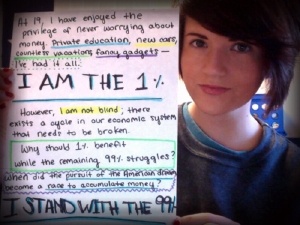 At 19, I have enjoyed the
privilege of never worrying about
money. Private education, new cars,
countless vacations, fancy gadgets—
I've had it all.
I AM THE 1%
However, I am not blind; there
exists a cycle in our economic system
that needs to be broken.
Why should 1% benefit
while the remaining 99% struggles?
When did the pursuit of the American dream
become a race to accumulate money?
I STAND WITH THE 99%